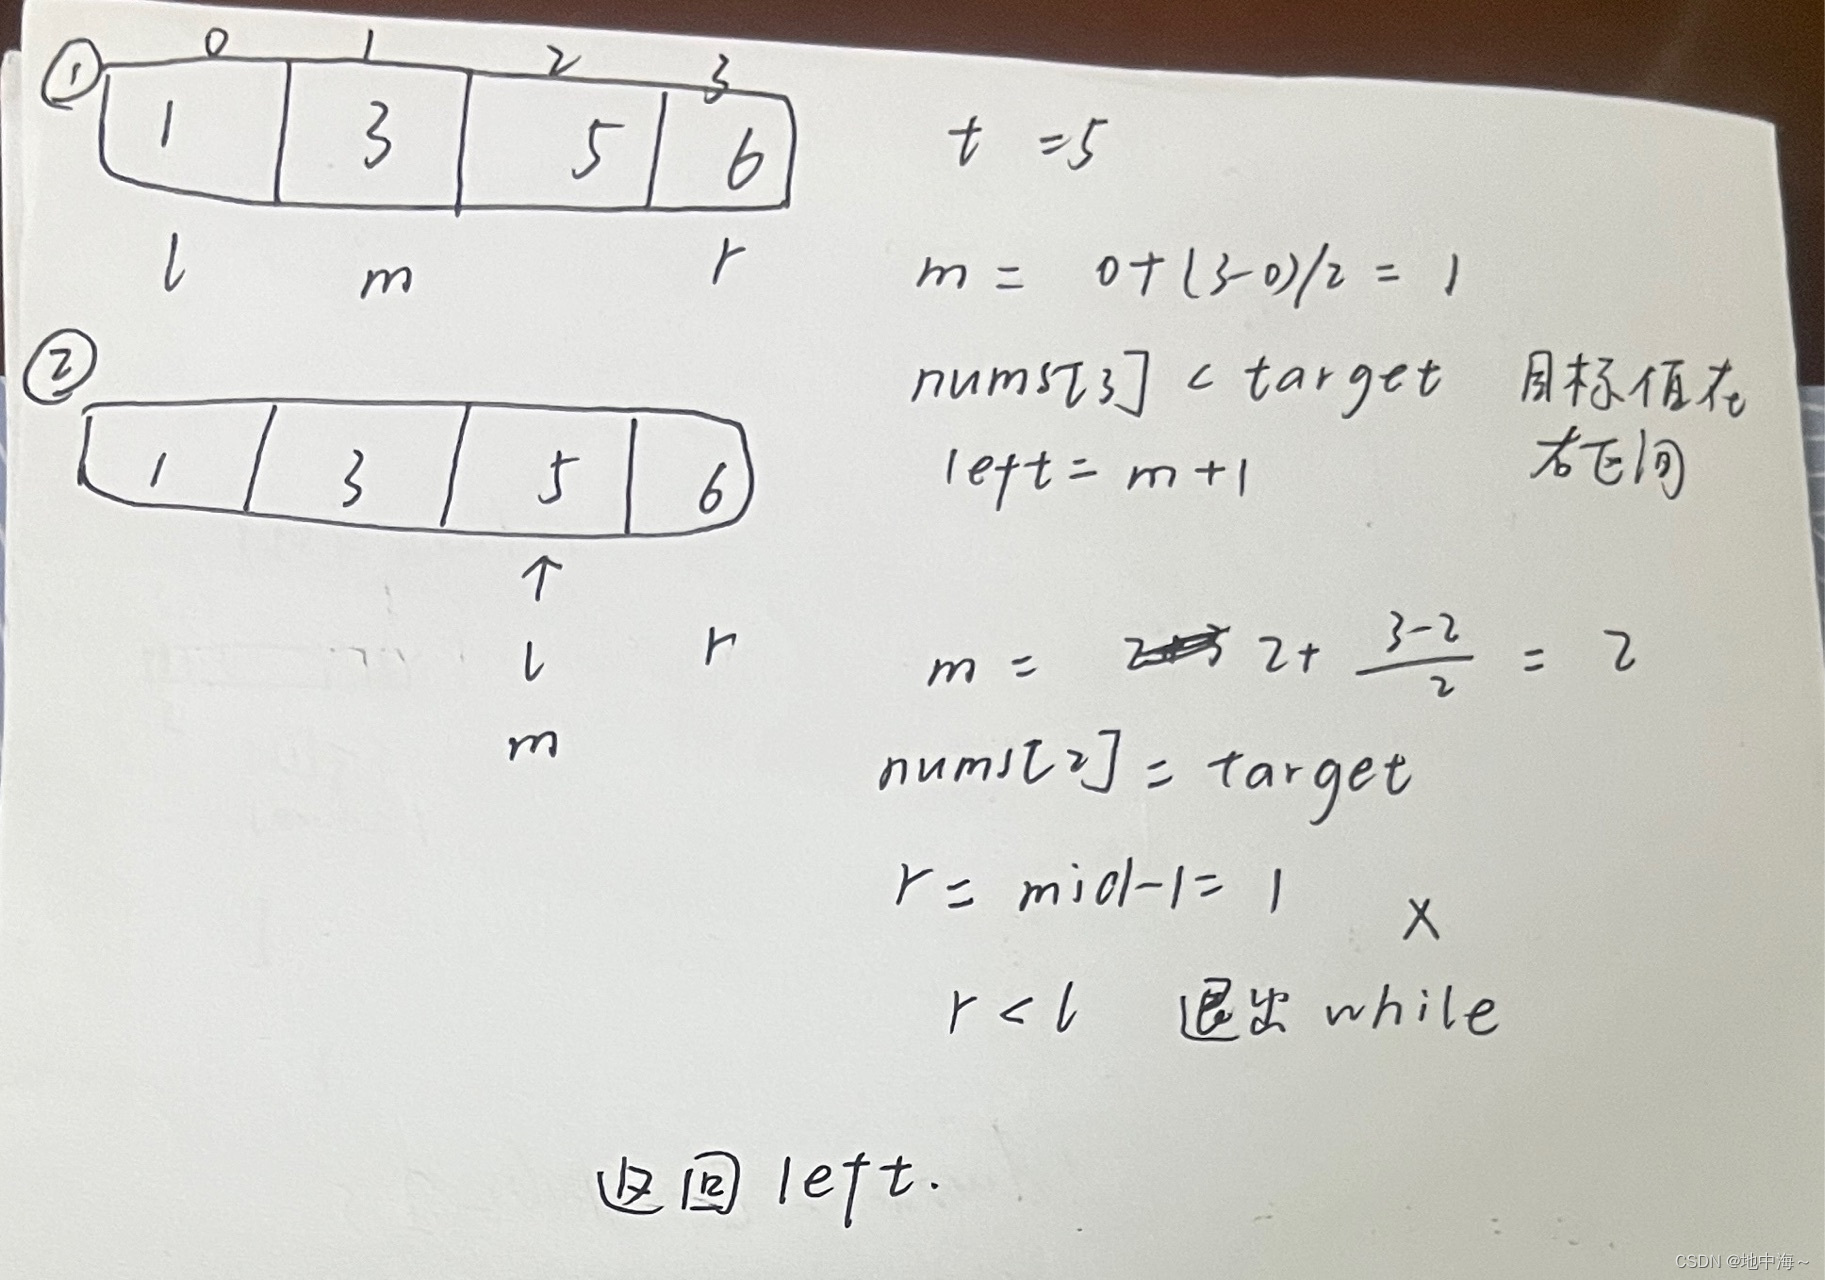 ① 0 1 2 3
1 3 5 6
l m r
t = 5
m = 0+(3-0)/2 = 1
nums[3] < target 目标值在
右区间
left = m+1
②
1 3 5 6
↑
l r
m
m = 2+ 3-2/2 = 2
nums[2] = target
r = mid-1 = 1 X
r < l 退出 while
返回 left.
CSDN @地中海~